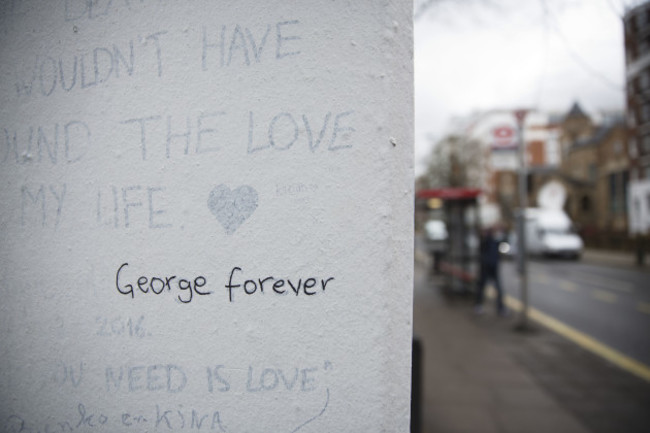 WOULDN'T HAVE
THE LOVE
MY LIFE.
George forever
2016.
NEED IS LOVE"